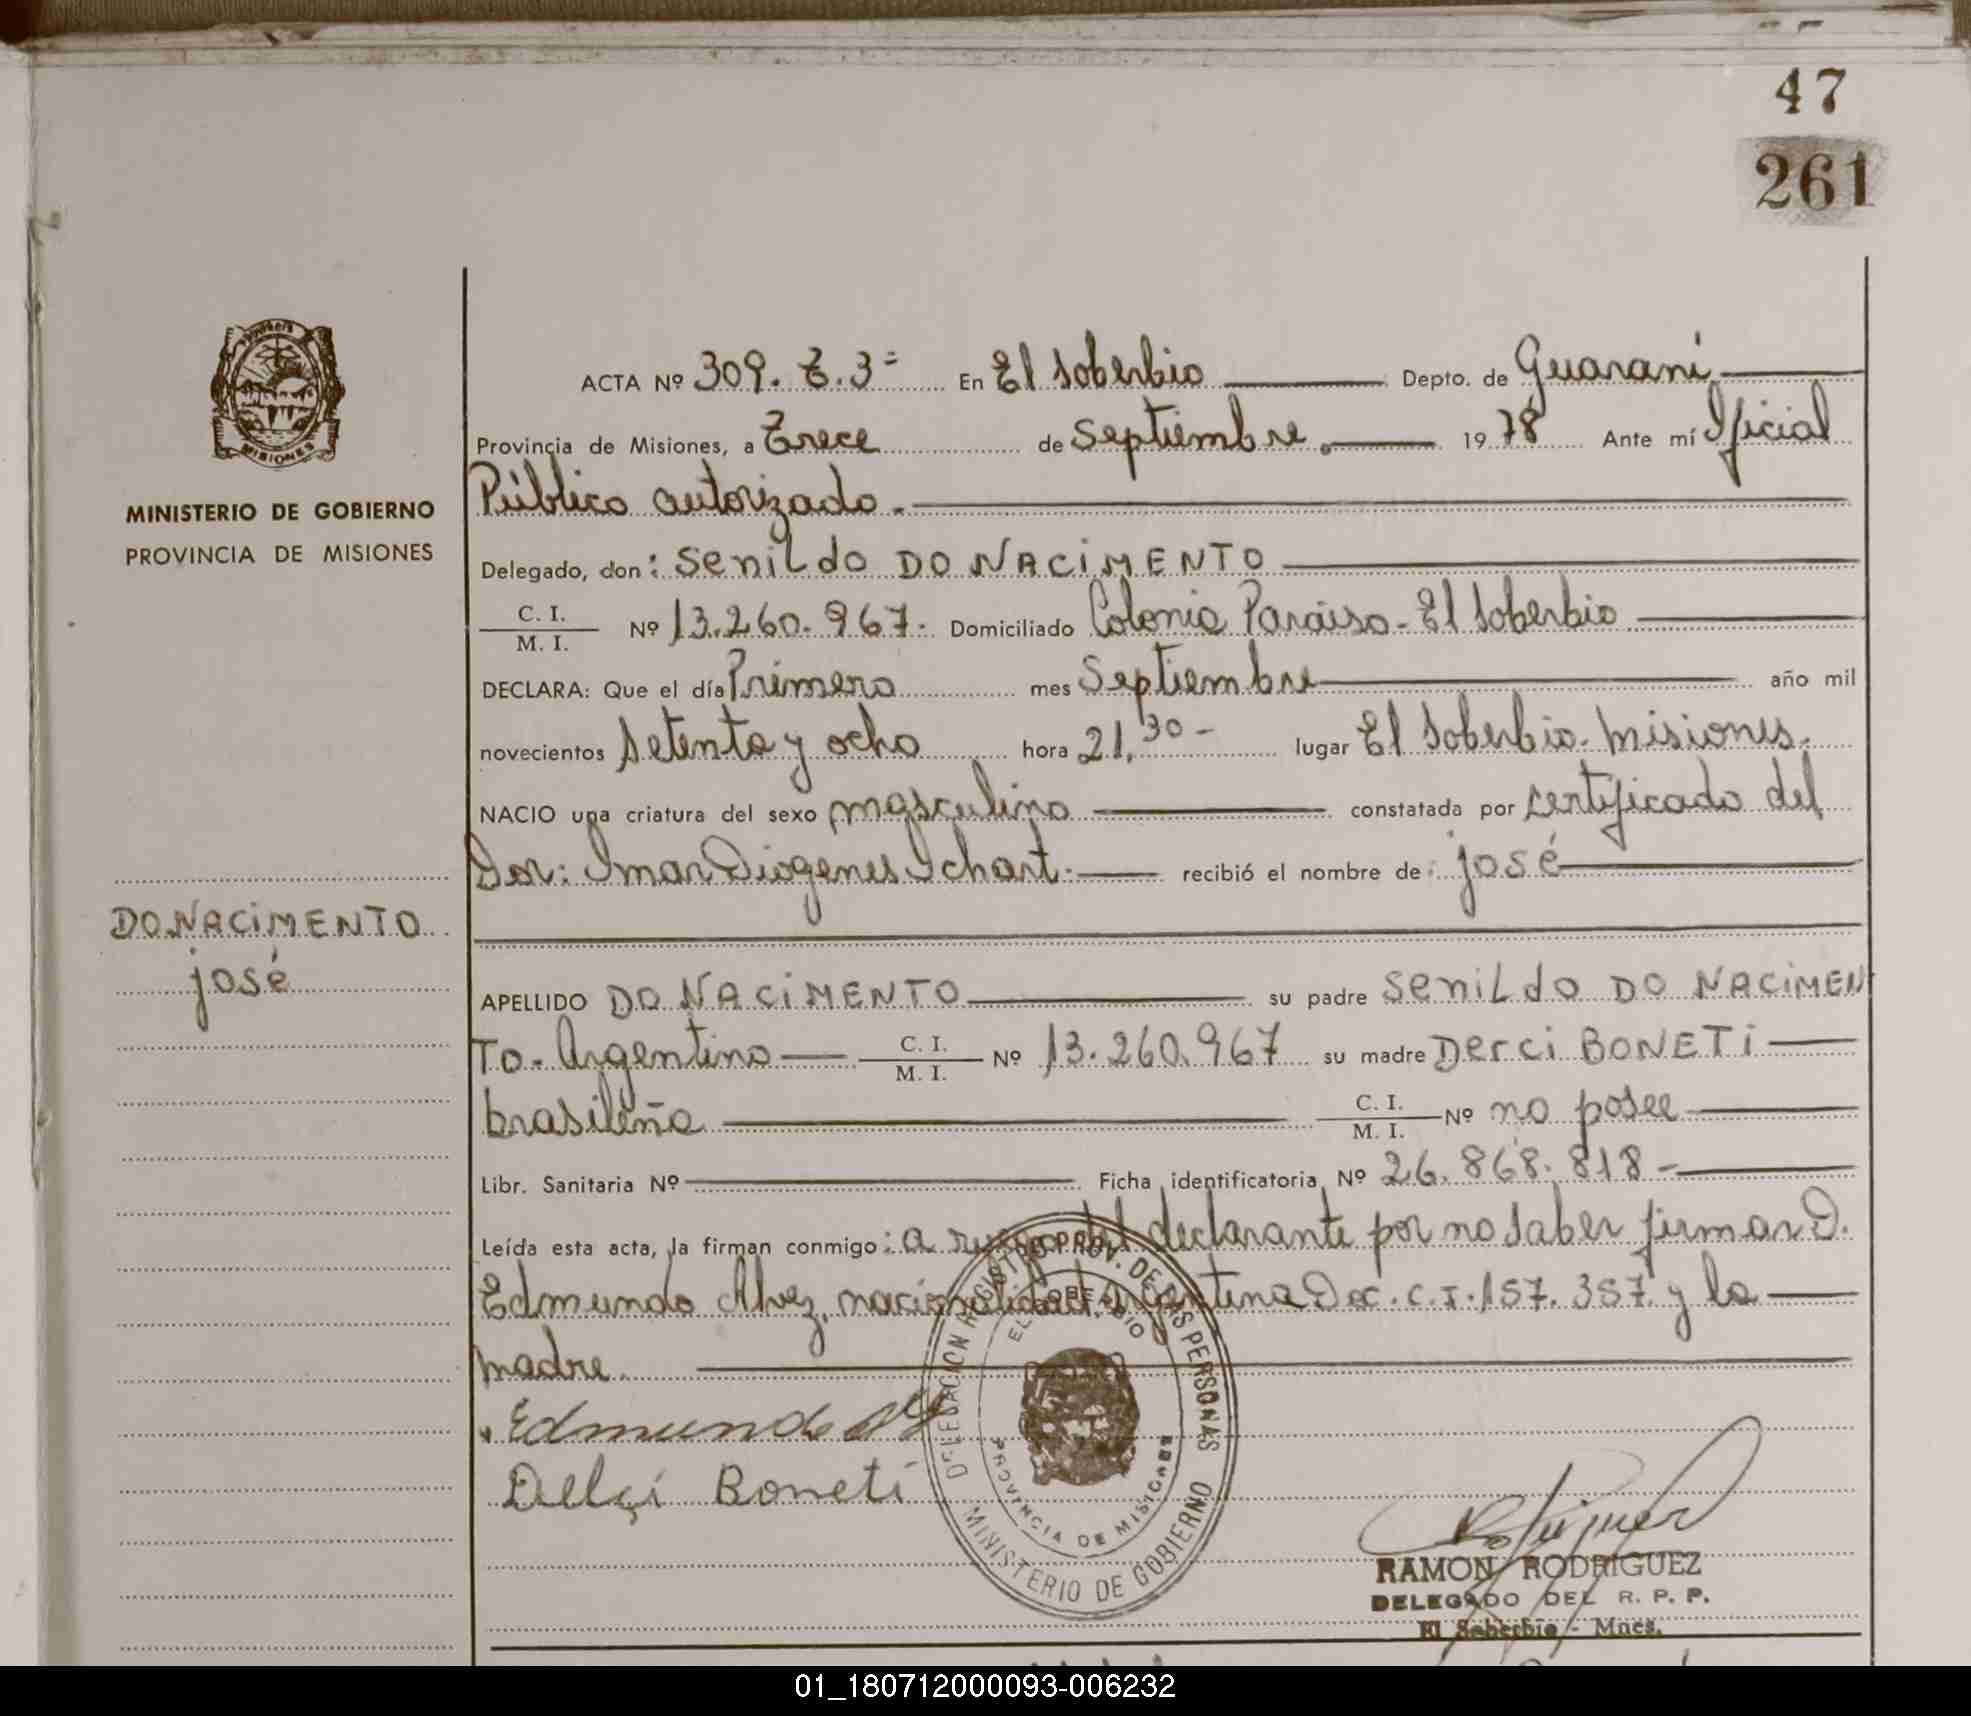 47
261
MISIONES
MINISTERIO DE GOBIERNO
PROVINCIA DE MISIONES
DO NACIMENTO
josé
ACTA Nº 309. T. 3º En El Soberbio Depto. de Guaraní
Provincia de Misiones, a Trece de Septiembre. 1978 Ante mí Oficial
Público autorizado.
Delegado, don: Senildo DO NACIMENTO
C. I.
M. I. Nº 13.260.967. Domiciliado Colonia Paraiso - El Soberbio
DECLARA: Que el día Primero mes Septiembre año mil
novecientos Setenta y ocho hora 21,30 - lugar El Soberbio. Misiones.
NACIO una criatura del sexo masculino constatada por certificado del
Dor: Imar Diogenes Ichart. recibió el nombre de: josé
APELLIDO DO NACIMENTO su padre Senildo DO NACIMEN
TO - Argentino C. I. M. I. Nº 13.260.967 su madre Derci BONETI
brasileña C. I. M. I. Nº no posee
Libr. Sanitaria Nº Ficha identificatoria Nº 26.868.818 -
Leída esta acta, la firman conmigo: a ruego del declarante por no saber firmar D.
Edmundo Alvez, nacionalidad Argentina Doc. C.I. 157.357 y la
madre.
Edmundo
Delçi Boneti
DELEGACION REGISTRO PROV. DE LAS PERSONAS
EL SOBERBIO
PROVINCIA DE MISIONES
MINISTERIO DE GOBIERNO
RAMON RODRIGUEZ
DELEGADO DEL R. P. P.
El Soberbio - Mnes.
01_180712000093-006232